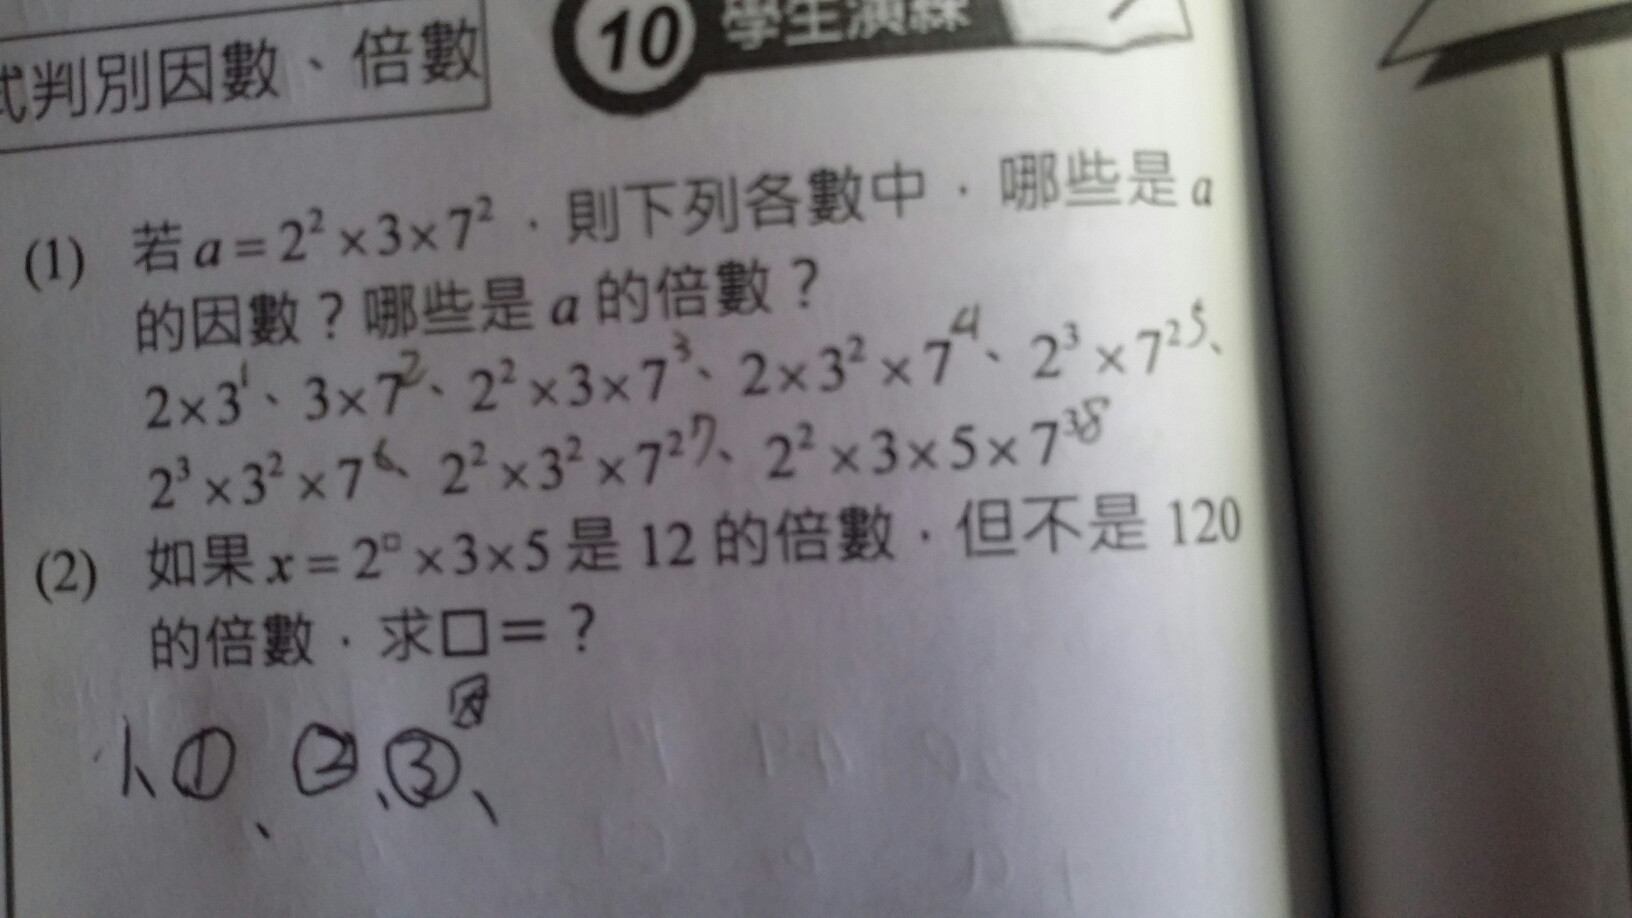 式判別因數、倍數
10 學生演練
(1) 若 a = 2² × 3 × 7²，則下列各數中，哪些是 a
的因數？哪些是 a 的倍數？
2×3 1、3×7 2、2²×3×7 3、2×3²×7 4、2³×7² 5、
2³×3²×7 6、2²×3²×7² 7、2²×3×5×7³ 8
(2) 如果 x = 2□ × 3 × 5 是 12 的倍數，但不是 120
的倍數，求□＝？
因
1、①、②、③、